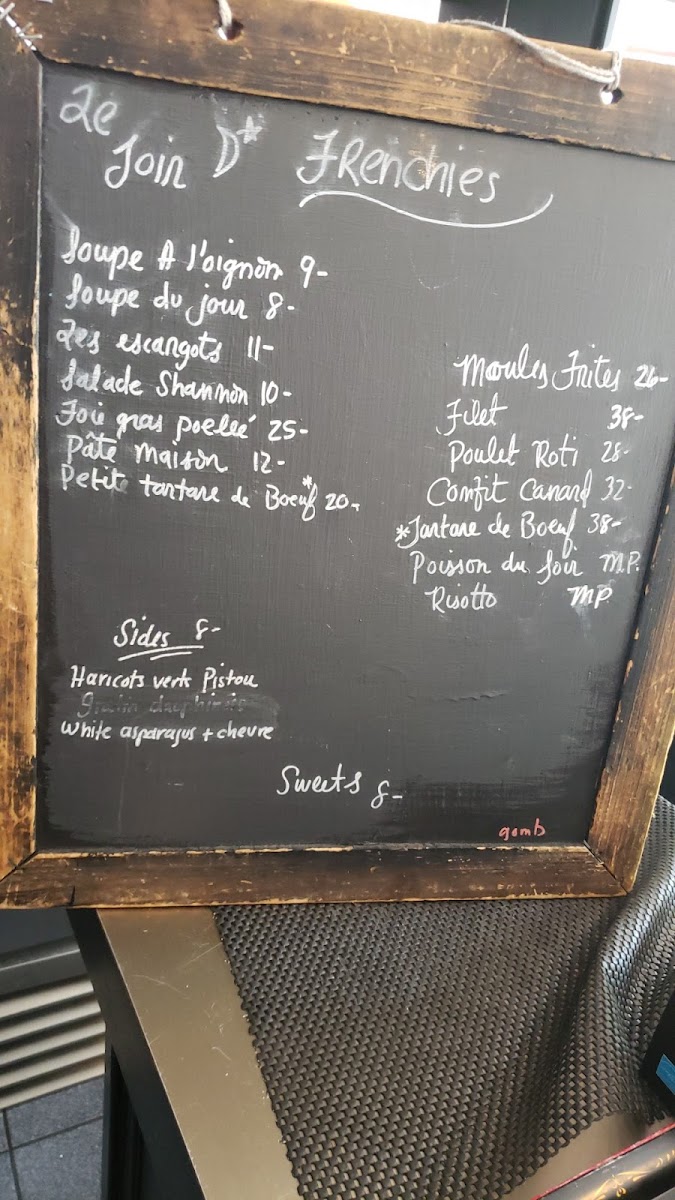 Le
Soin D* Frenchies
Soupe A l'oignon 9-
Soupe du jour 8-
Les escargots 11-
Salade Shannon 10-
Foie gras poelé 25-
Pâte maison 12-
Petite tartare de Boeuf* 20-
Moules Frites 26-
Filet 38-
Poulet Roti 28-
Confit Canard 32-
*Tartare de Boeuf 38-
Poisson du Soir M.P.
Risotto MP
Sides 8-
Haricots verts Pistou
White asparagus + chevre
Sweets 8-
gomb